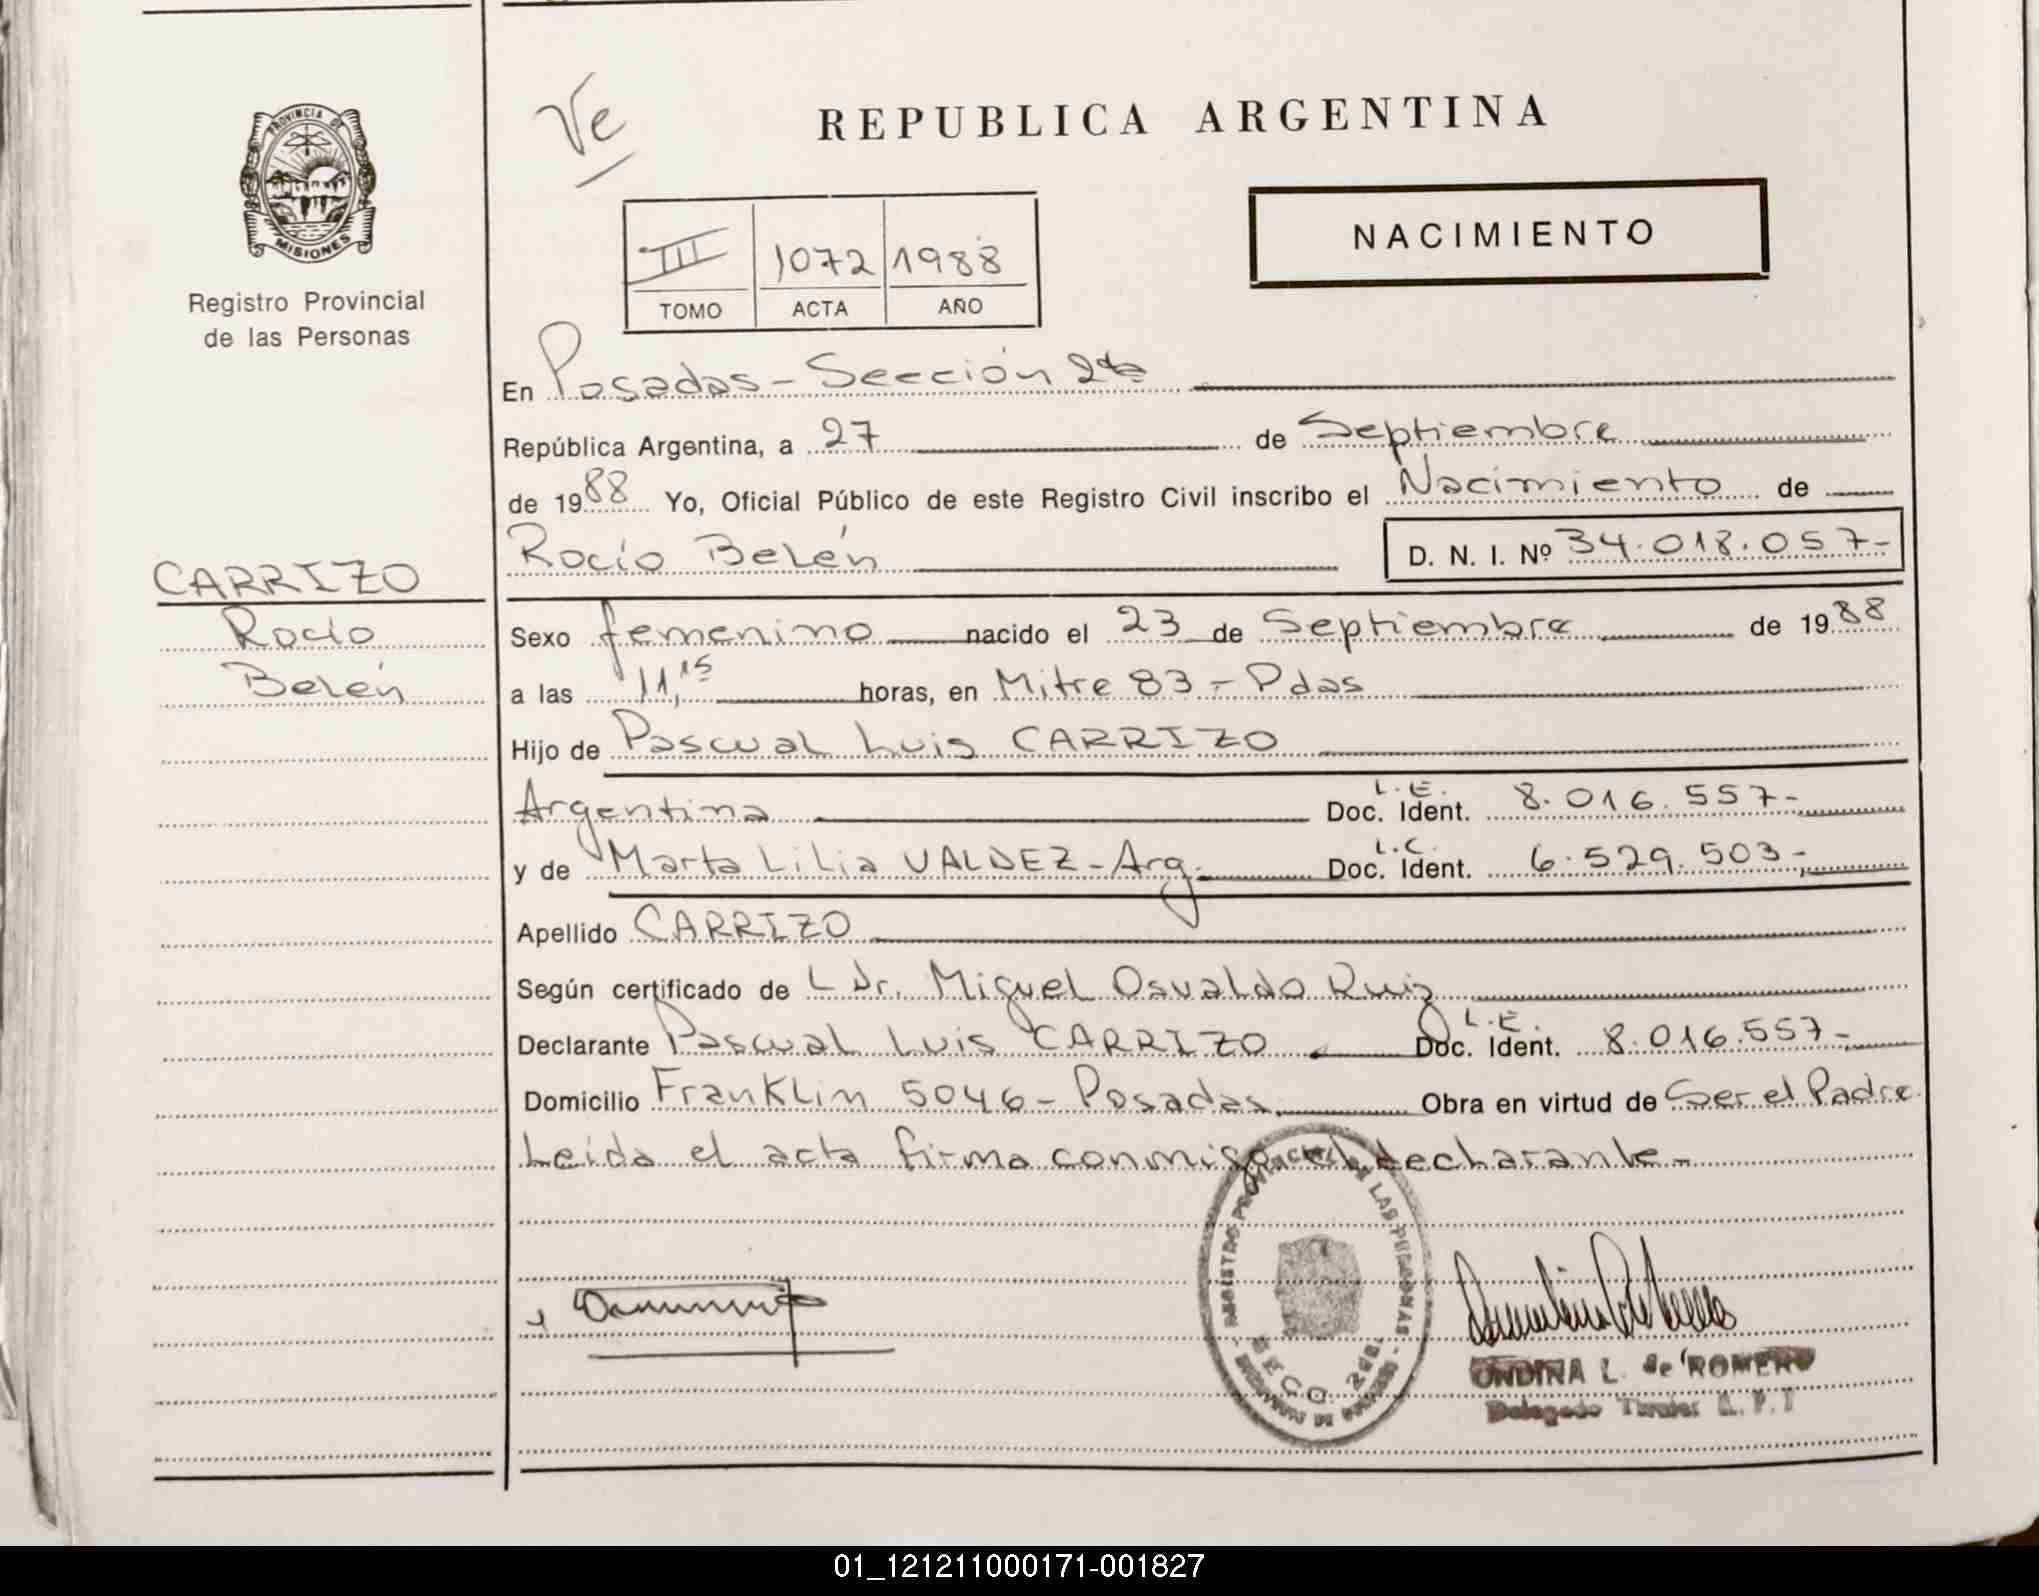 PROVINCIA DE
MISIONES
Registro Provincial
de las Personas
Ve
REPUBLICA ARGENTINA
NACIMIENTO
III 1072 1988
TOMO ACTA AÑO
En Posadas - Sección 2da
República Argentina, a 27 de Septiembre
de 1988 Yo, Oficial Público de este Registro Civil inscribo el Nacimiento de
Rocío Belén D. N. I. Nº 34.018.057-
CARRIZO
Rocío
Belén
Sexo femenino nacido el 23 de Septiembre de 1988
a las 11,15 horas, en Mitre 83 - Pdas
Hijo de Pascual Luis CARRIZO
Argentina Doc. Ident. L.E. 8.016.557-
y de Marta Lilia VALDEZ - Arg. Doc. Ident. L.C. 6.529.503-
Apellido CARRIZO
Según certificado de L Dr. Miguel Osvaldo Ruiz
Declarante Pascual Luis CARRIZO Doc. Ident. L.E. 8.016.557-
Domicilio Franklin 5046 - Posadas Obra en virtud de Ser el Padre
Leida el acta firma conmigo el declarante-
REGISTRO PROVINCIAL DE LAS PERSONAS
SECC. 2da.
ONDINA L. de ROMERO
Delegado Titular R. P. P
01_121211000171-001827